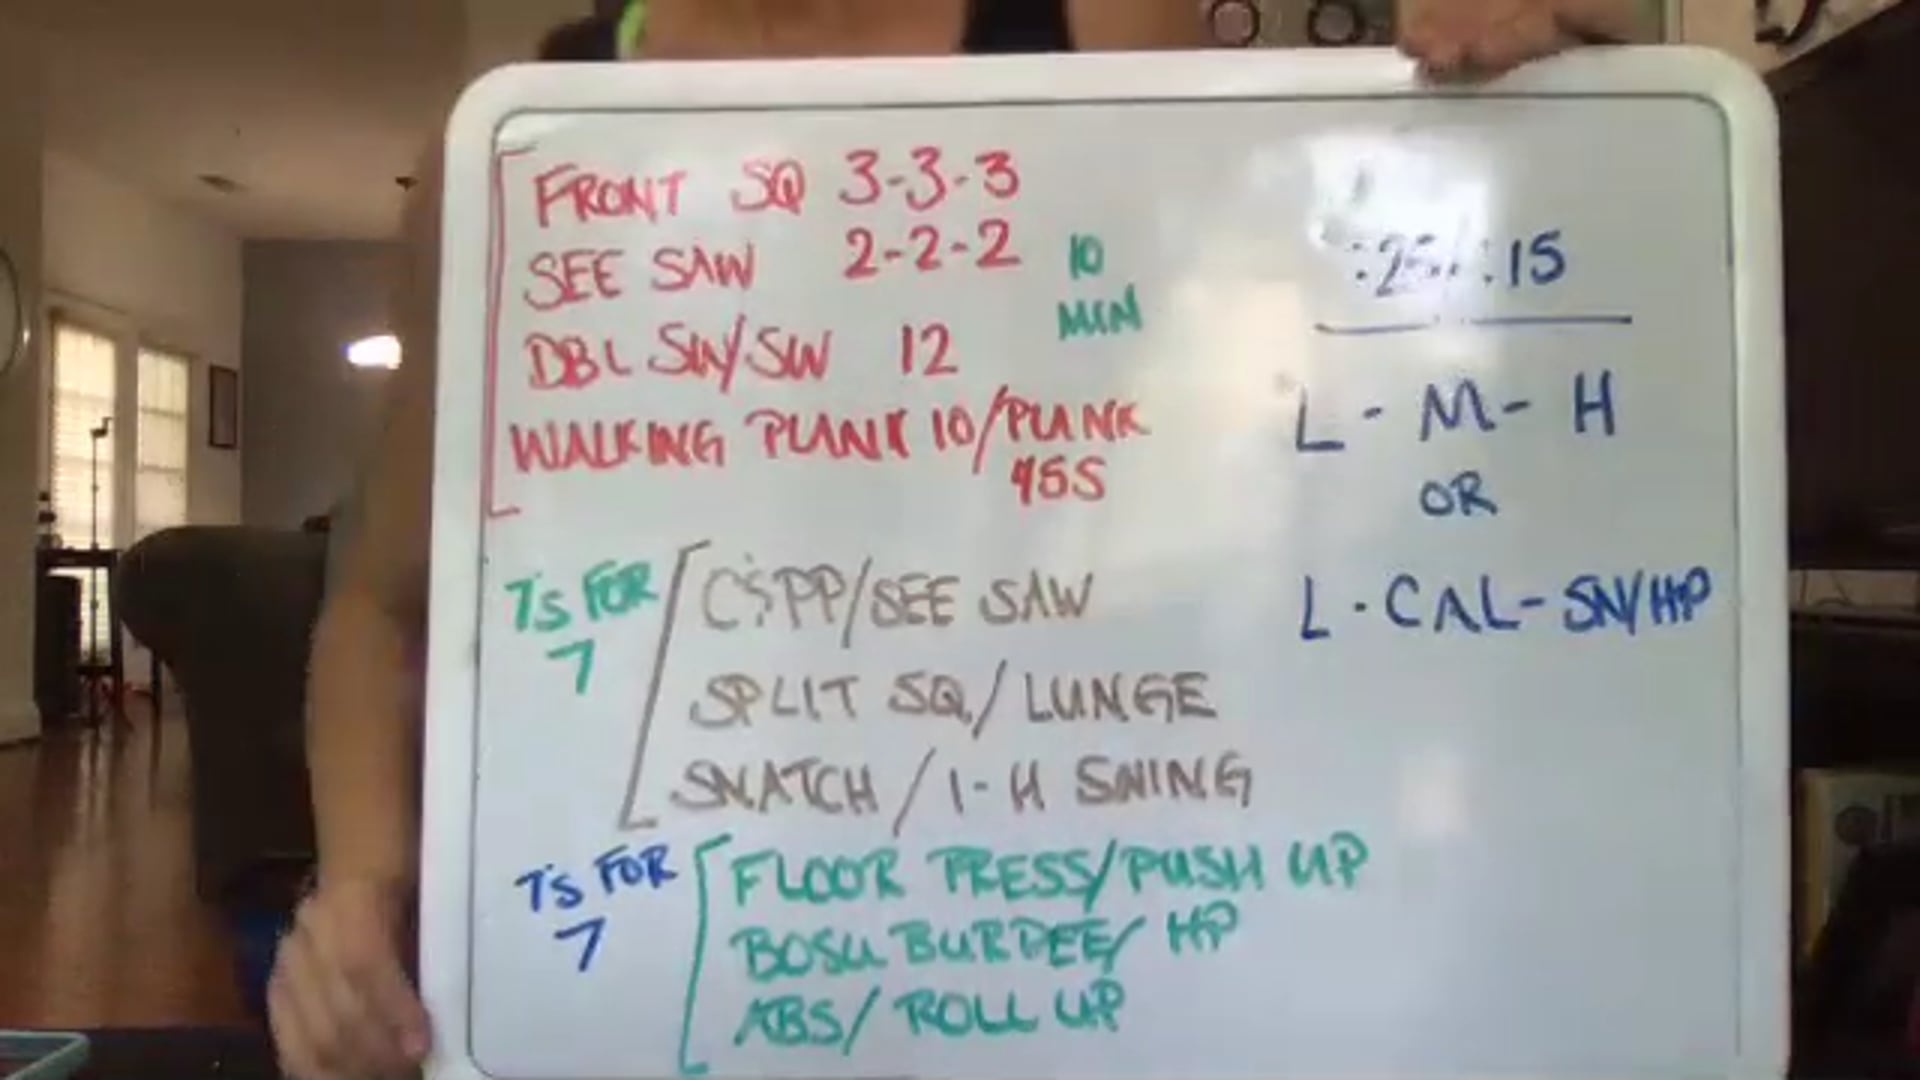 FRONT SQ 3-3-3
SEE SAW 2-2-2
10 MIN
DBL SW/SW 12
WALKING PLANK 10/PLANK
45S
7's FOR
7
C&PP/SEE SAW
SPLIT SQ/LUNGE
SNATCH/1-H SWING
7's FOR
7
FLOOR PRESS/PUSH UP
BOSU BURPEE/HP
ABS/ROLL UP
:25/:15
L-M-H
OR
L-CAL-SN/HP